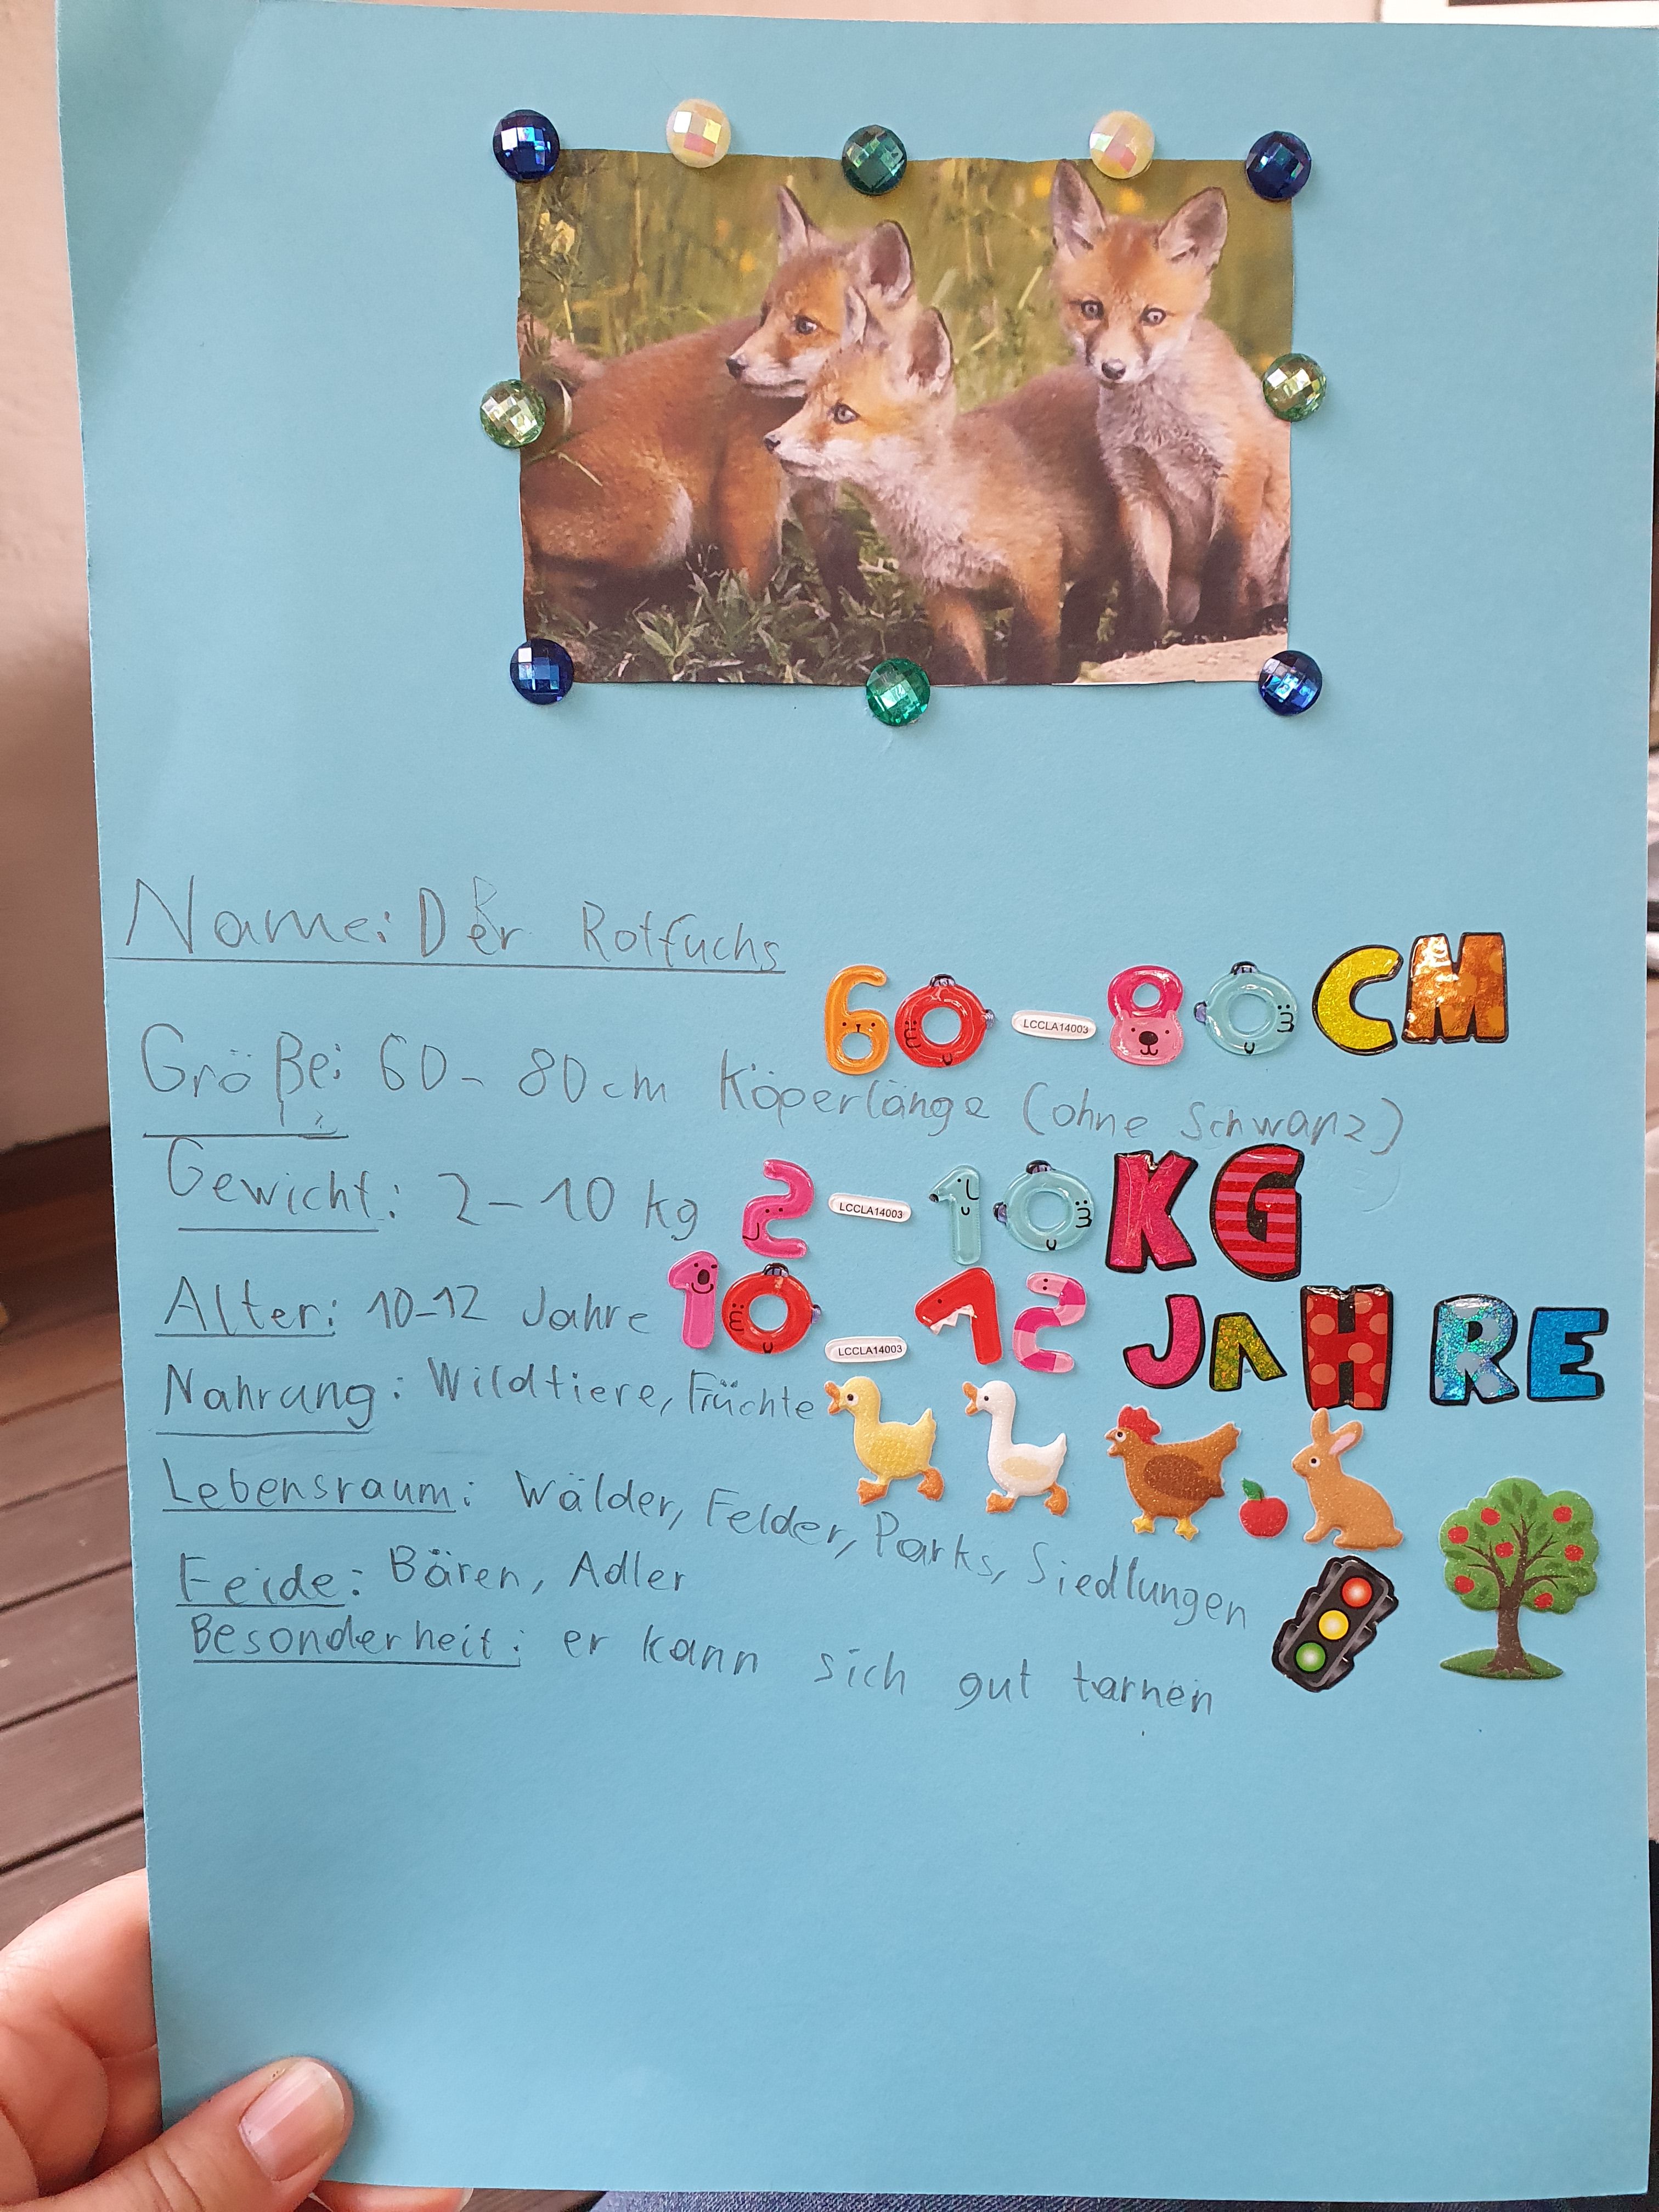 Name: Der Rotfuchs
60 LCCLA14003 80 CM
Größe: 60 - 80 cm Köperlänge (ohne Schwanz)
Gewicht: 2 - 10 kg 2 LCCLA14003 10 KG
Alter: 10-12 Jahre 10 LCCLA14003 12 JAHRE
Nahrung: Wildtiere, Früchte
Lebensraum: Wälder, Felder, Parks, Siedlungen
Feide: Bären, Adler
Besonderheit: er kann sich gut tarnen